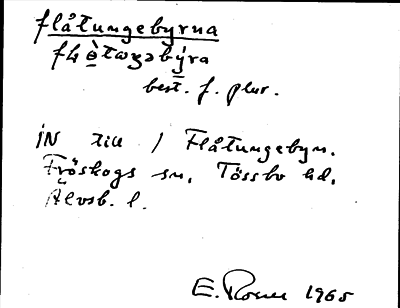 flåtungebyrna
best. f. plur.
IN till / Flåtungebyn.
Fröskogs sn, Tössbo hd,
Älvsb. l.
E. Rosell 1965